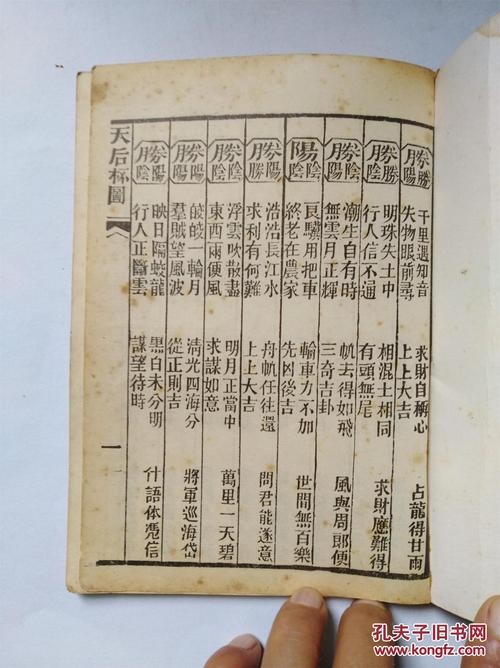 勝勝陽
千里遇知音 求財自稱心 占龍得甘雨
失物眼前尋 上上大吉
勝勝陰
明珠失土中 相混土相同 求財應難得
行人信不通 有頭無尾
勝陰陰
潮生自有時 帆去得如飛 風與周郎便
無雲月正輝 三奇吉卦
陽陰陰
良驥用把車 輸車力不加 世間無百樂
終老在農家 先凶後吉
勝陽勝
浩浩長江水 舟帆任往還 問君能遂意
求利有何難 上上大吉
勝陰陰
浮雲吹散盡 明月正當中 萬里一天碧
東西兩便風 求謀如意
勝陽陰
皎皎一輪月 清光四海分 將軍巡海岱
羣賊望風波 從正則吉
勝陽陰
映日隔蛟龍 黑白未分明 什語体憑信
行人正斷雲 謀望待時
天后杯圖
一
孔夫子旧书网
kongfz.com